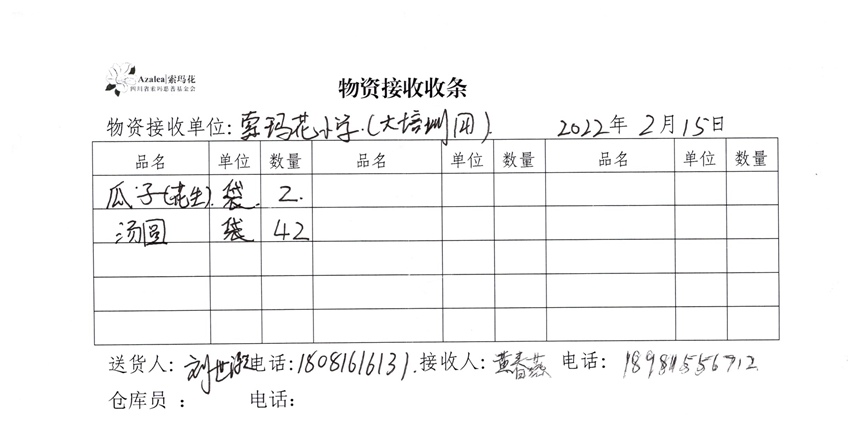 Azalea|索玛花
四川省索玛慈善基金会
物资接收收条
物资接收单位:索玛花小学.(大培训团). 2022年 2月15日
品名 单位 数量 品名 单位 数量 品名 单位 数量
瓜子(花生). 袋. 2.
汤圆 袋 42
送货人: 刘世 电话:18081616131. 接收人: 黄春燕 电话:
仓库员 : 电话: